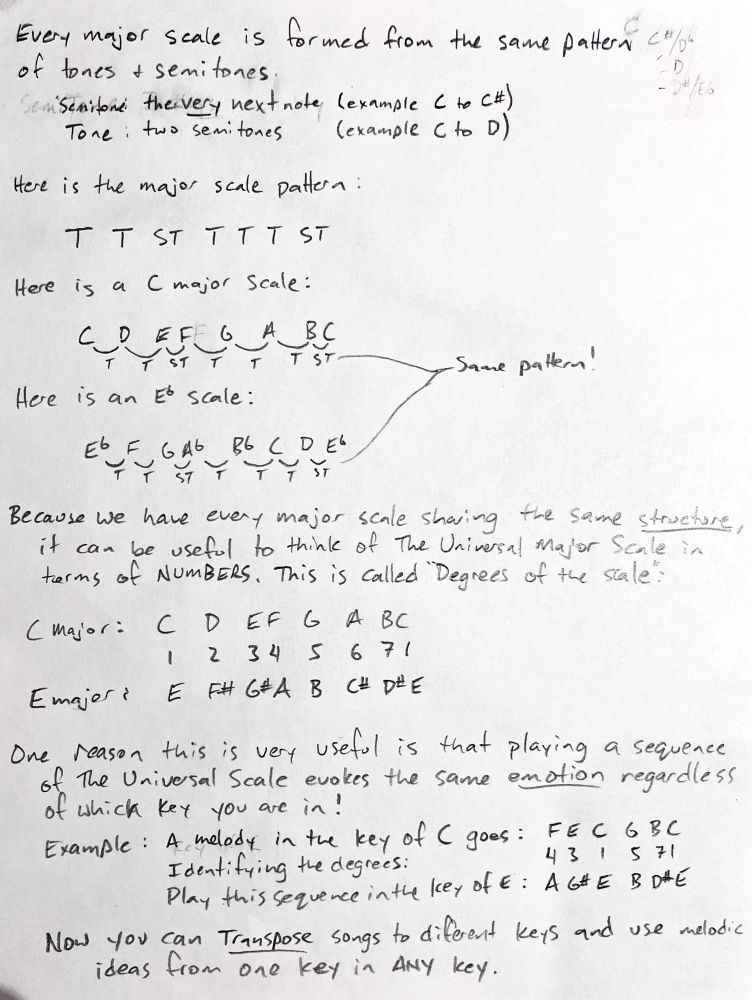 Every major scale is formed from the same pattern
of tones + semitones.
C
C#/Db
- D
- D#/Eb
Semitone: the very next note (example C to C#)
Tone: two semitones (example C to D)
Here is the major scale pattern:
T T ST T T T ST
Here is a C major scale:
C D E F G A B C
T T ST T T T ST
Same pattern!
Here is an Eb scale:
Eb F G Ab Bb C D Eb
T T ST T T T ST
Because we have every major scale sharing the same structure,
it can be useful to think of The Universal Major Scale in
terms of NUMBERS. This is called "Degrees of the scale":
C major: C D E F G A B C
1 2 3 4 5 6 7 1
E major: E F# G# A B C# D# E
One reason this is very useful is that playing a sequence
of The Universal Scale evokes the same emotion regardless
of which key you are in!
Example: A melody in the key of C goes: F E C G B C
Identifying the degrees: 4 3 1 5 7 1
Play this sequence in the key of E: A G# E B D# E
Now you can Transpose songs to diferent keys and use melodic
ideas from one key in ANY key.